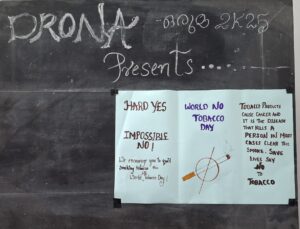 DRONA - ഒരുമ 2K25
Presents..........
HARD YES
IMPOSSIBLE
NO!
We encourage you to quit
smoking tobacco on
World Tobacco Day!
WORLD NO
TOBACCO
DAY
TOBACCO PRODUCTS
CAUSE CANCER AND
IT IS THE DISEASE
THAT KILLS A
PERSON IN MOST
CASES CLEAR THIS
SMOKE. SAVE
LIVES SAY
NO
TO
TOBACCO